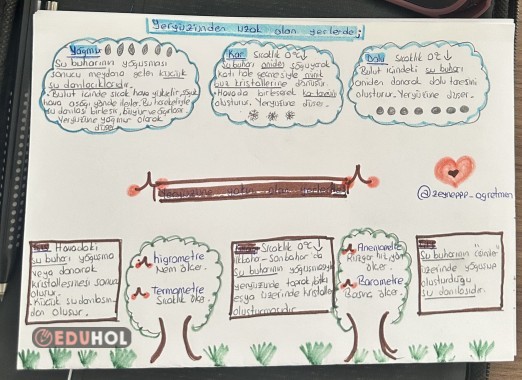 Yeryüzünden uzak olan yerlerde;
Yağmur
Su buharının yoğuşması
sonucu meydana gelen küçük
su damlacıklarıdır.
Bulut içinde sıcak hava yükselir, soğuk
hava aşağı yönde ilerler. Bu hareketiyle
su damlası birleşir, büyür ve ağırlaşır.
Yeryüzüne yağmur olarak
düşer.
Kar Sıcaklık 0°C ↓
Su buharı aniden soğuyarak
katı hale geçmesiyle minik
buz kristallerine dönüşür.
Havada birleşerek kar tanesini
oluşturur. Yeryüzüne düşer.
Dolu Sıcaklık 0°C ↓
Bulut içindeki su buharı
aniden donarak dolu tanesini
oluşturur. Yeryüzüne düşer.
@zeyneppp_ogretmen
Havadaki
su buharı yoğuşması
veya donarak
kristalleşmesi sonucu
oluşur.
Küçük su damlasın-
dan oluşur.
higrometre
Nem ölçer.
Termometre
Sıcaklık ölçer.
Sıcaklık 0°C ↓
ilkbahar-Sonbahar'da
Su buharının yoğuşmayıp
yeryüzünde toprak, bitki
eşya üzerinde kristalleş
oluşturmasıdır.
Anemometre
Rüzgar
ölçer.
Barometre
Basınç ölçer.
Su buharının
üzerinde yoğuşup
oluşturduğu
su damlasıdır.
EDUHOL